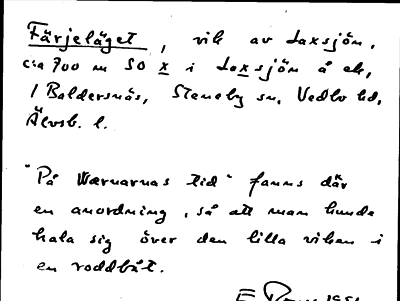 Färjeläget, vik av Laxsjön,
c:a 700 m SO x i Laxsjön å ek,
/ Baldersnäs, Steneby sn, Vedbo hd,
Älvsb. l.
"På Wærnarnas tid" fanns där
en anordning, så att man kunde
hala sig över den lilla viken i
en roddbåt.